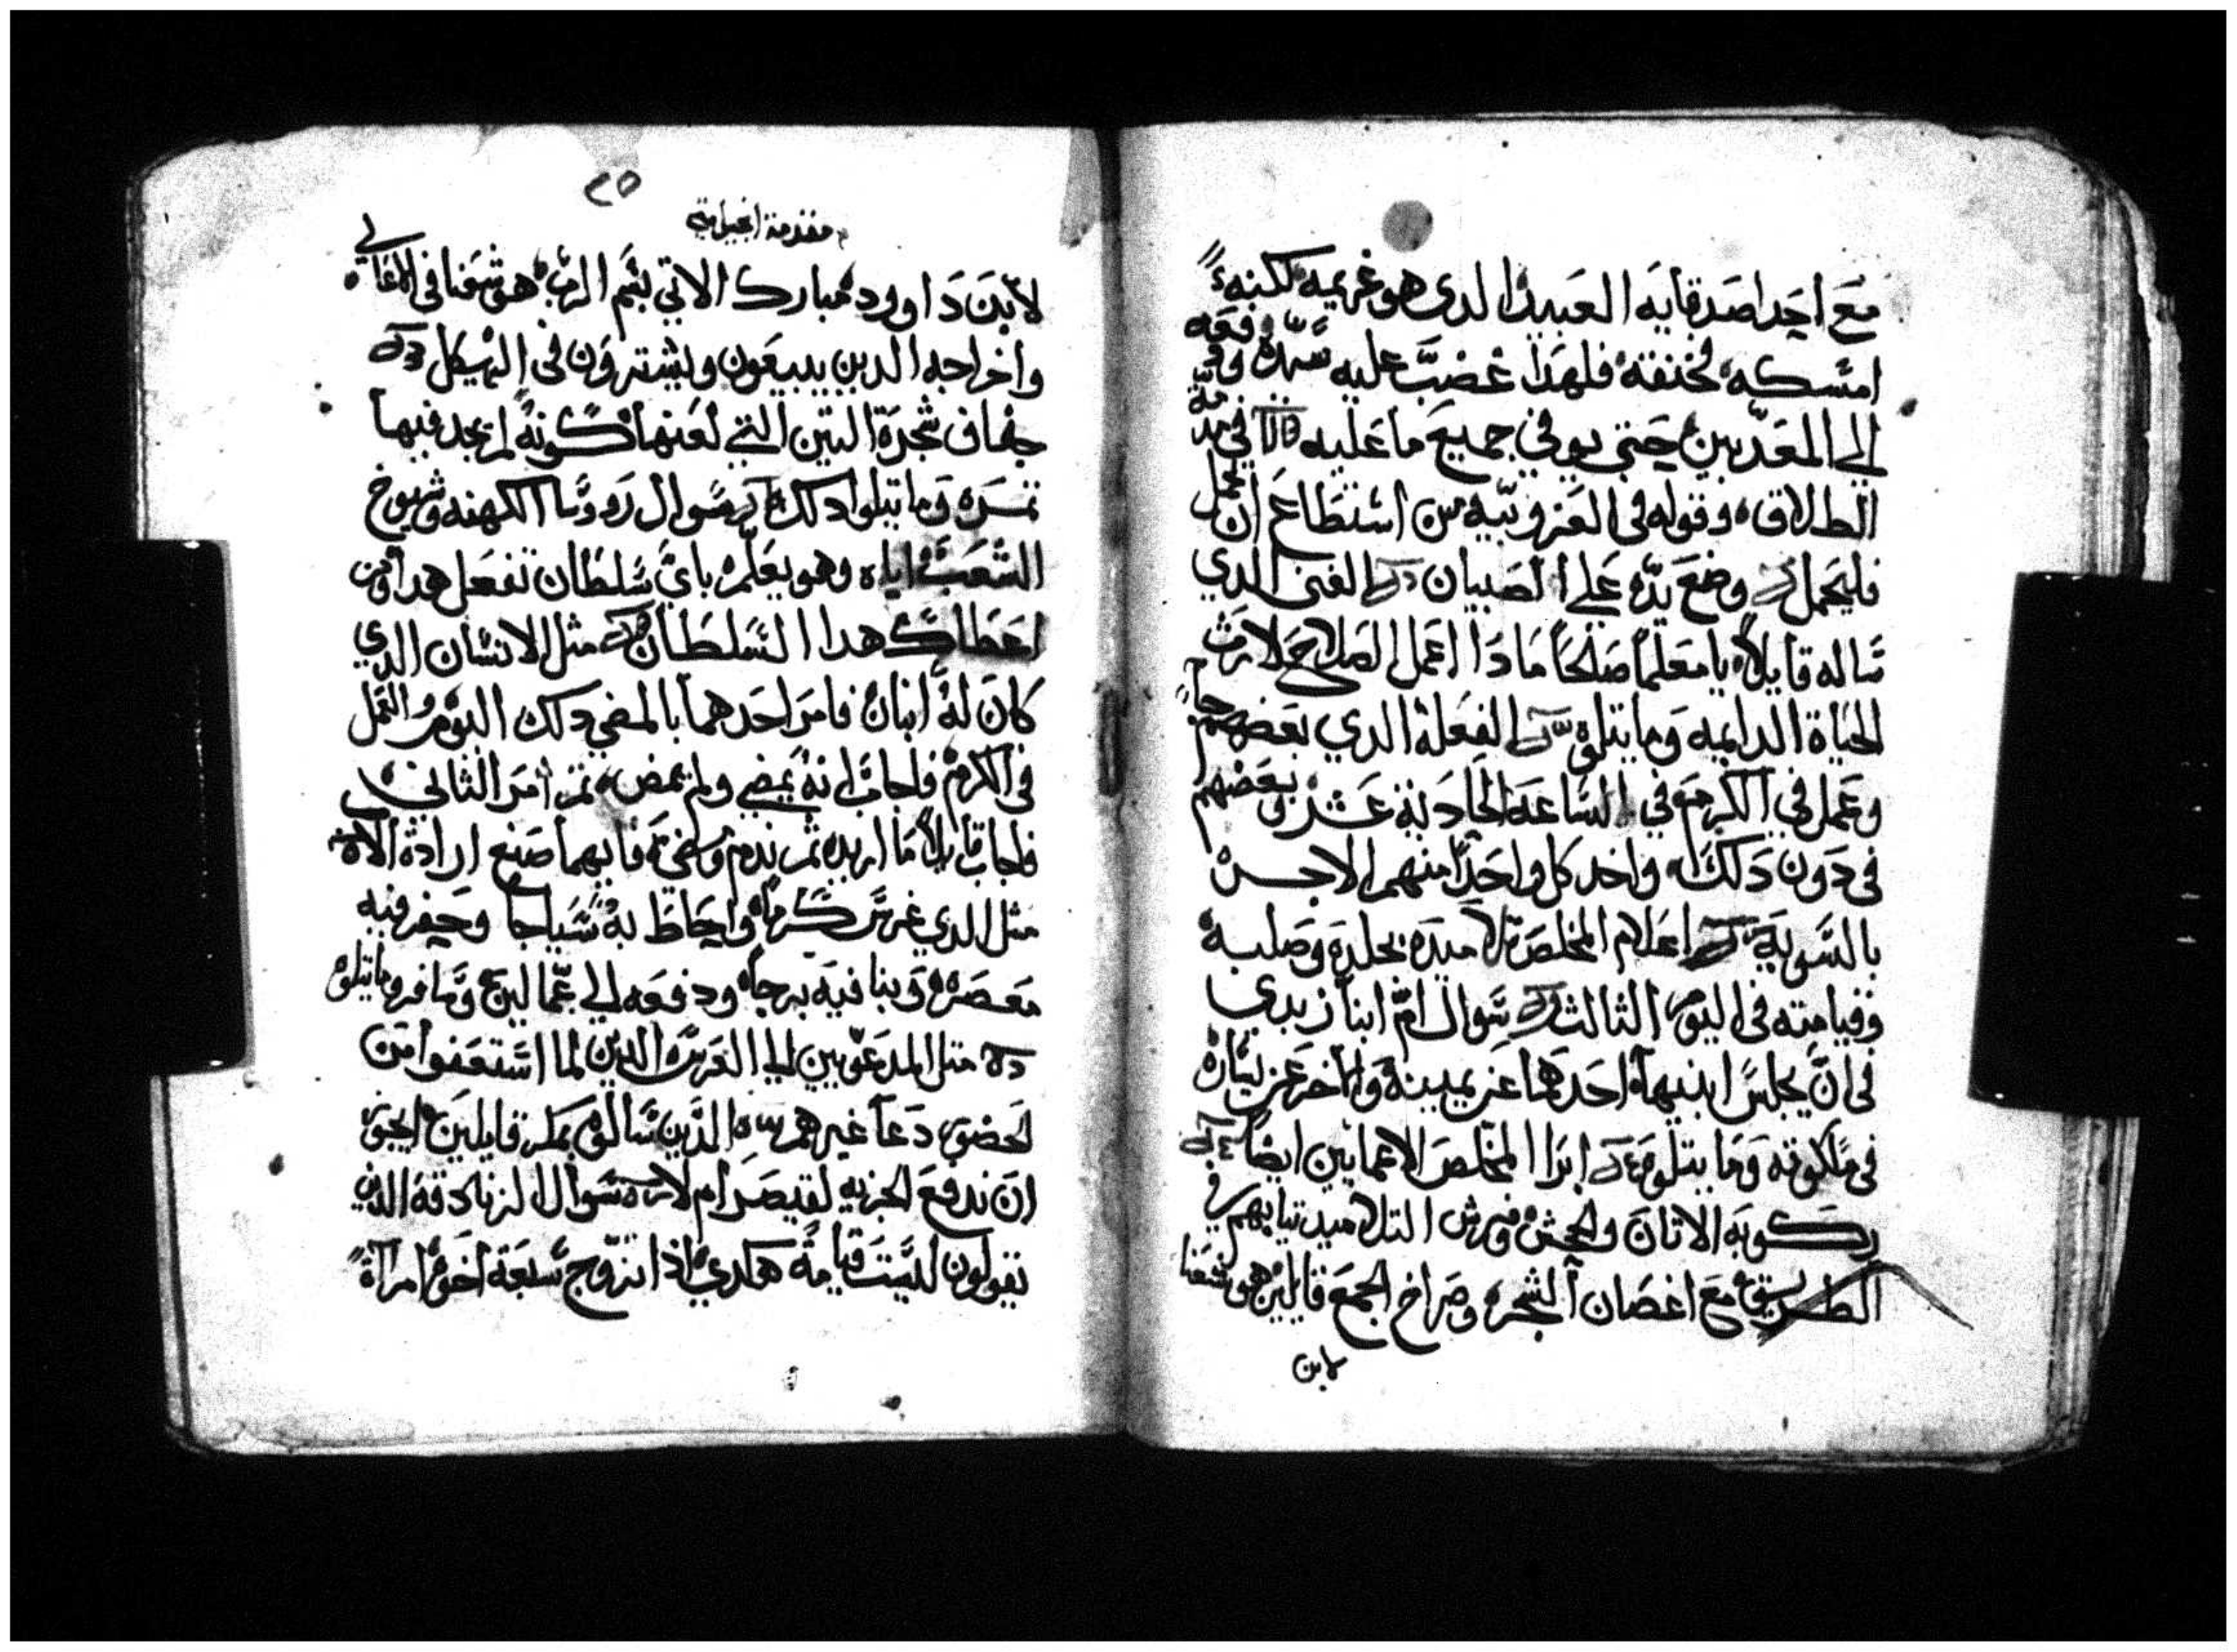 مع احد اصدقايه العبيد الدي هو غريمه لكنه
امسكه وخنقه فلهدا غضب عليه سيده ودفعه
الي المعدبين حتي يوفي جميع ما عليه في
الطلاق وقوله في العزوبيه من استطاع ان يحمل
فليحمل وضع يده علي الصبيان الغني الدي
ساله قايلا يا معلما صالحا مادا اعمل الصلاح لارث
الحياة الدايمه وما يتلوه الفعله الدي بعضهم جا
وعمل في الكرم في الساعة الحادية عشر وبعضهم
في دون دلك واخد كل واحدا منهم الاجره
بالسويه اعلام المخلص تلاميده بجلده وصلبه
وقيامته في اليوم الثالث سوال ام ابنا زبدي
في ان يجلس ابنيها احدهما عن يمينه والاخر عن يساره
في ملكوته وما يتلوه ابرا المخلص الاعمايين ايضا
ركوبه الاتان والجحش وفرش التلاميد تيابهم في
الطريق مع اغصان الشجره وصراخ الجمع قايلين هوشعنا
لابن
٢٥
مقدمة انجيل متي
لابن داوود مبارك الاتي باسم الرب هوشعنا في الاعالي
واخراجه الدين يبيعون ويشترون في الهيكل
جفاف شجرة التين التي لعنها كونه لم يجد فيها
تمره وما يتلوا دلك سوال روسا الكهنه وشيوخ
الشعب اياه وهو يعلم باي سلطان تفعل هدا ومن
اعطاك هدا السلطان مثل الانسان الدي
كان له ابنان فامر احدهما بالمضي دلك اليوم والعمل
في الكرم فاجاب انه يمضي ولم يمض تم امر الثاني
فاجاب قايلا ما اريد تم ندم ومضي فايهما صنع ارادة الاب
مثل الدي غرس كرما واحاط به سياجا وحفر فيه
معصره وبنا فيه برجا ودفعه الي عمالين وسافر وما يتلوه
مثل المدعويين الي العرس الدين لما استعفوا من
الحضور دعا غيرهم الدين سالوه بمكر قايلين ايجوز
ان ندفع الجزيه لقيصر ام لا سوال الزنادقه الدين
يقولون ليست قيامة هكدي اذا تزوج سبعة اخوه امراة